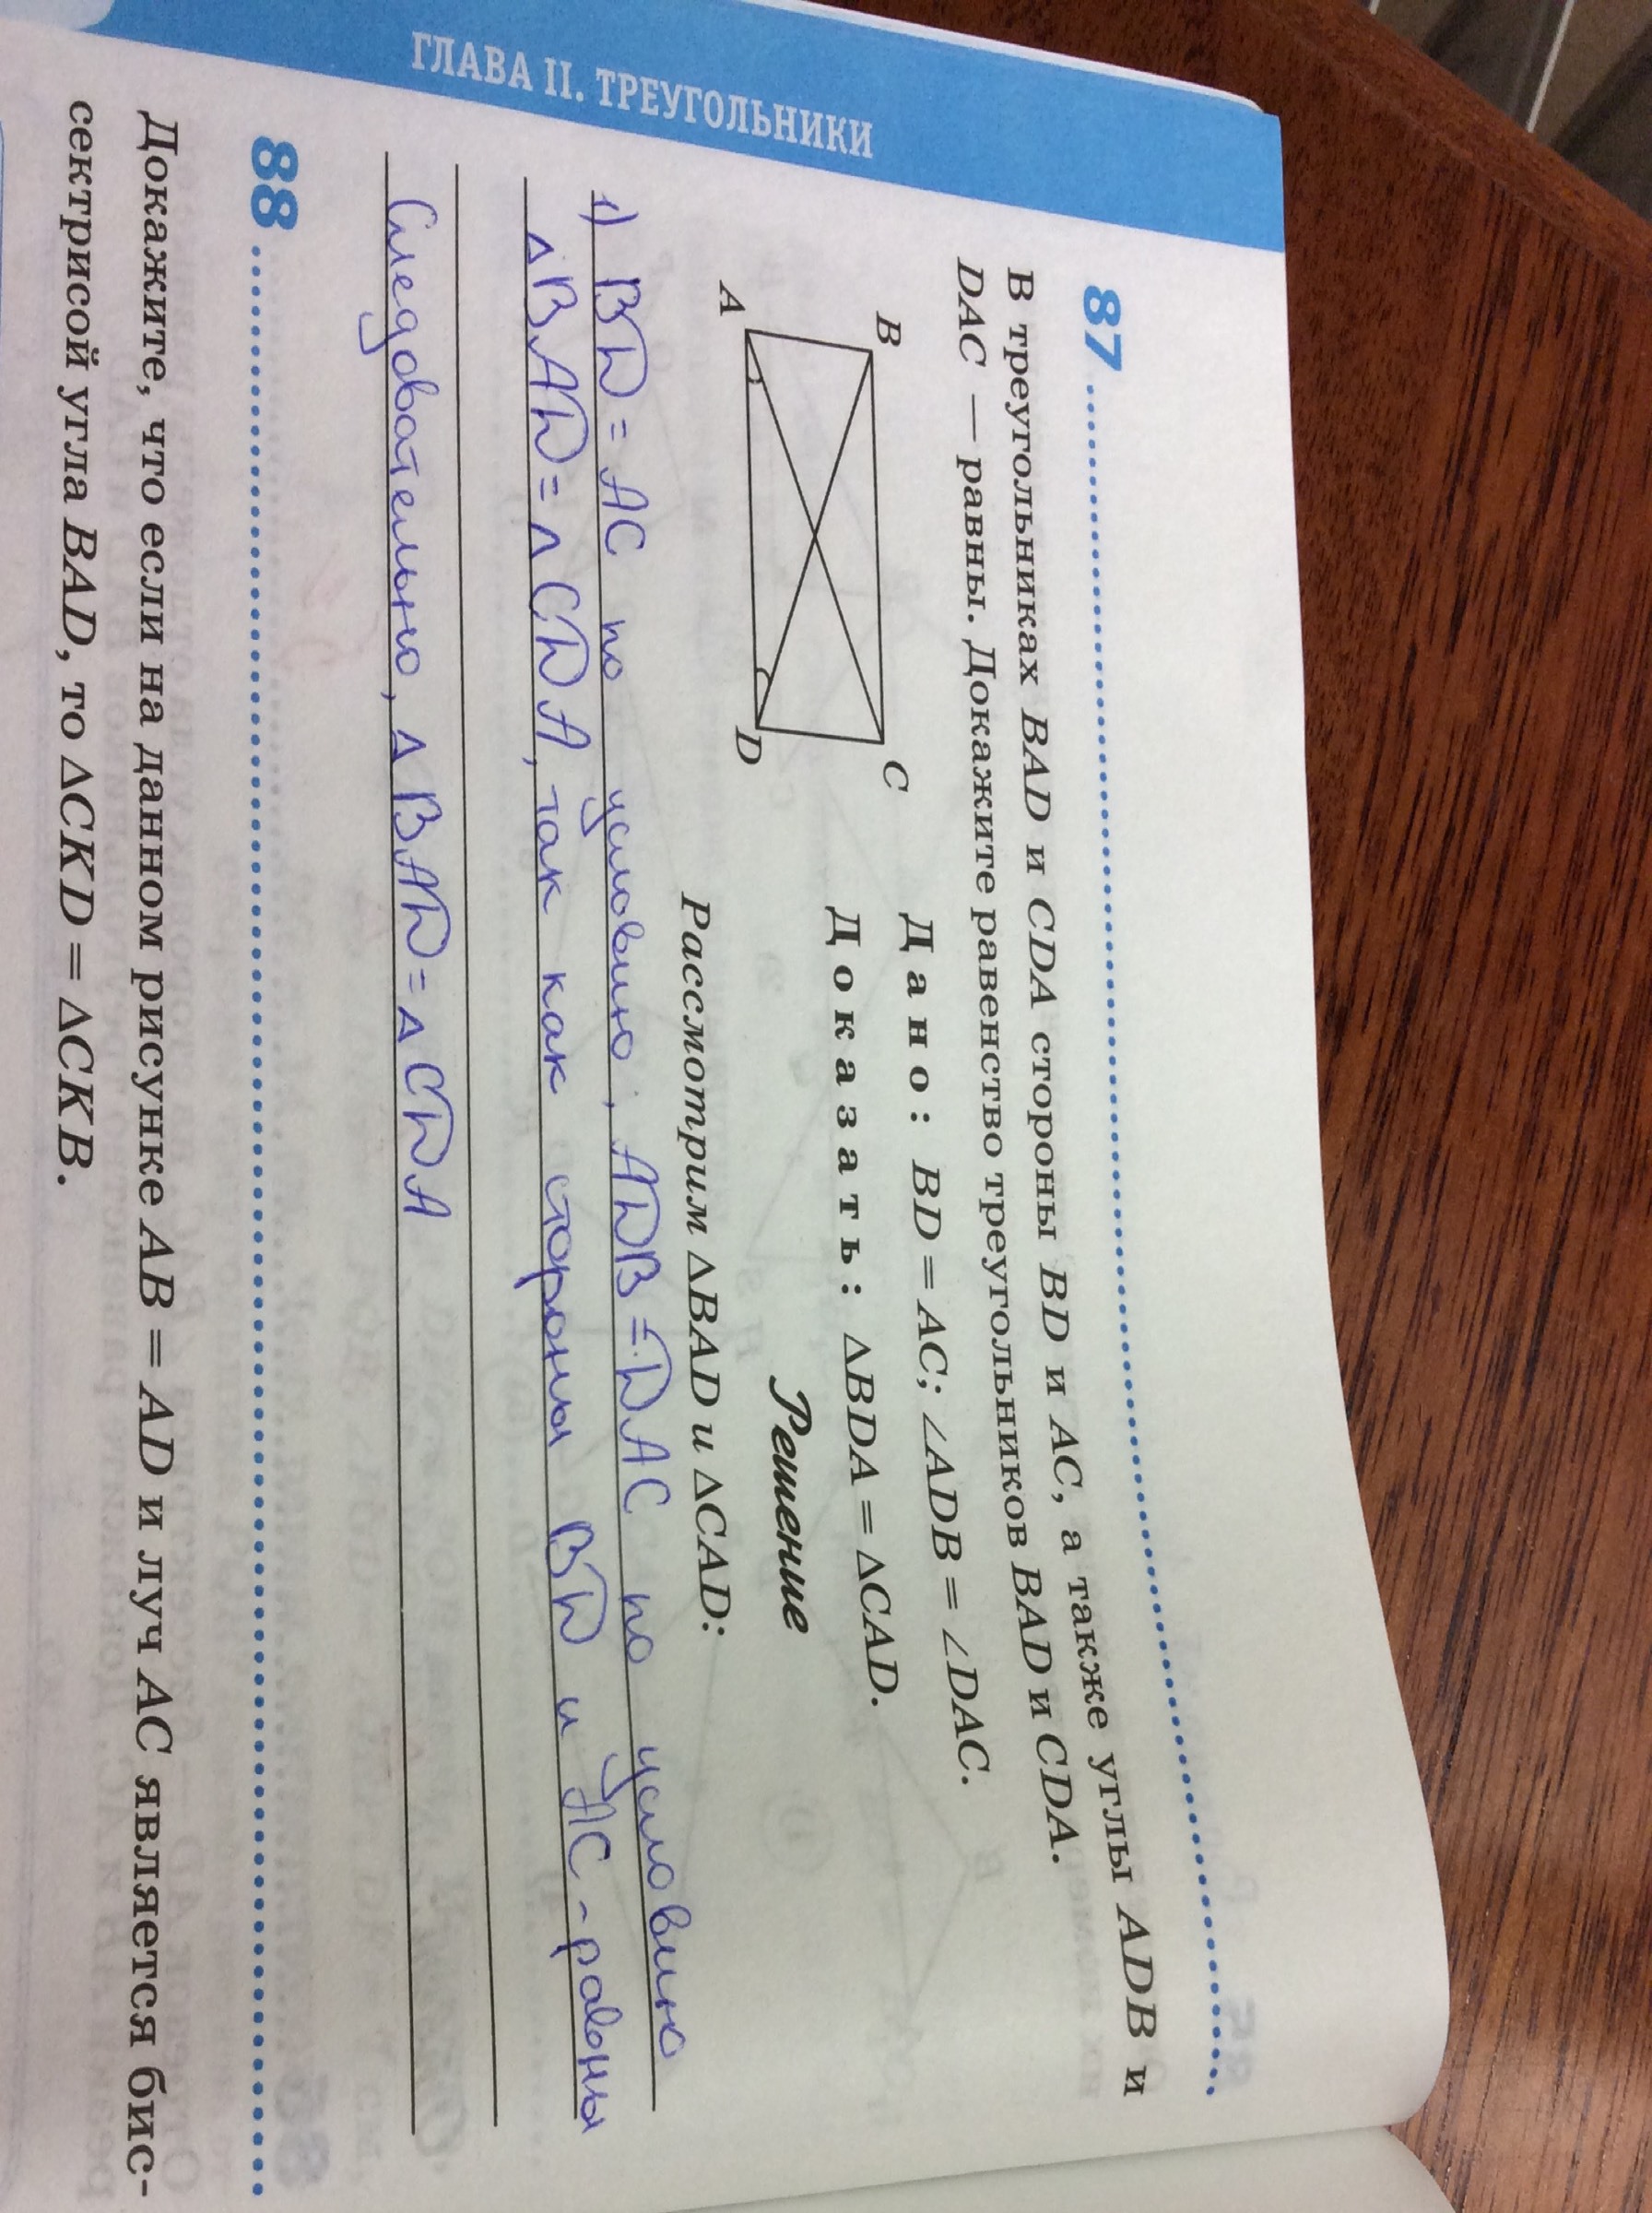 ГЛАВА II. ТРЕУГОЛЬНИКИ
87
В треугольниках BAD и CDA стороны BD и AC, а также углы ADB и
DAC — равны. Докажите равенство треугольников BAD и CDA.
B
C
A
D
Дано: BD = AC; ∠ADB = ∠DAC.
Доказать: ΔBDA = ΔCAD.
Решение
Рассмотрим ΔBAD и ΔCAD:
1) BD = AC по условию, ADB = DAC по условию
ΔBAD = ΔCDA, так как стороны BD и AC - равны
Следовательно, ΔBAD = ΔCDA
88
Докажите, что если на данном рисунке AB = AD и луч AC является бис-
сектрисой угла BAD, то ΔCKD = ΔCKB.